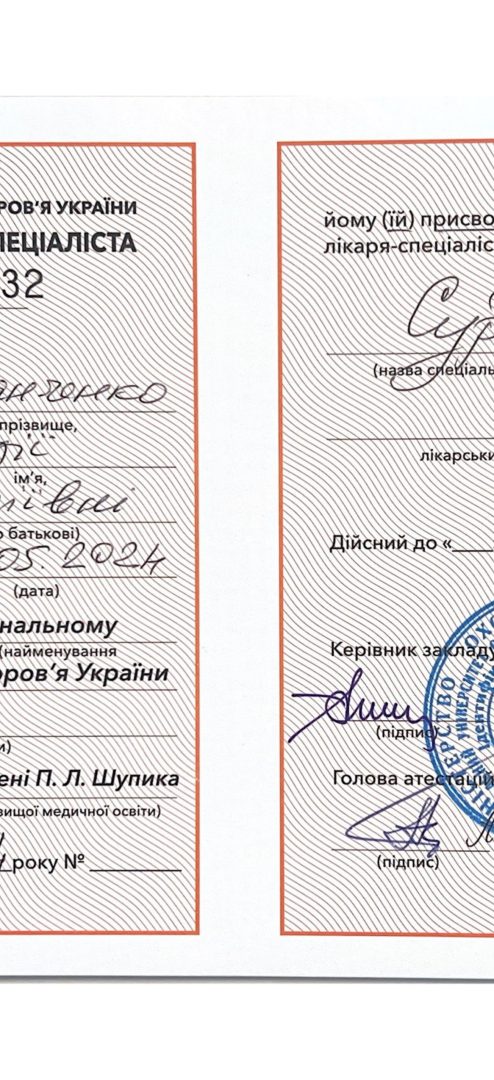 РОВ'Я УКРАЇНИ
ПЕЦІАЛІСТА
32
анченко
прізвище,
ії
ім'я,
іївні
о батькові)
05.2024
(дата)
нальному
(найменування
оров'я України
и)
ені П. Л. Шупика
вищої медичної освіти)
року №
йому (їй) присво
лікаря-спеціаліс
Сур
(назва спеціаль
лікарськи
Дійсний до «
Керівник закладу
(підпис)
Голова атестацій
(підпис)